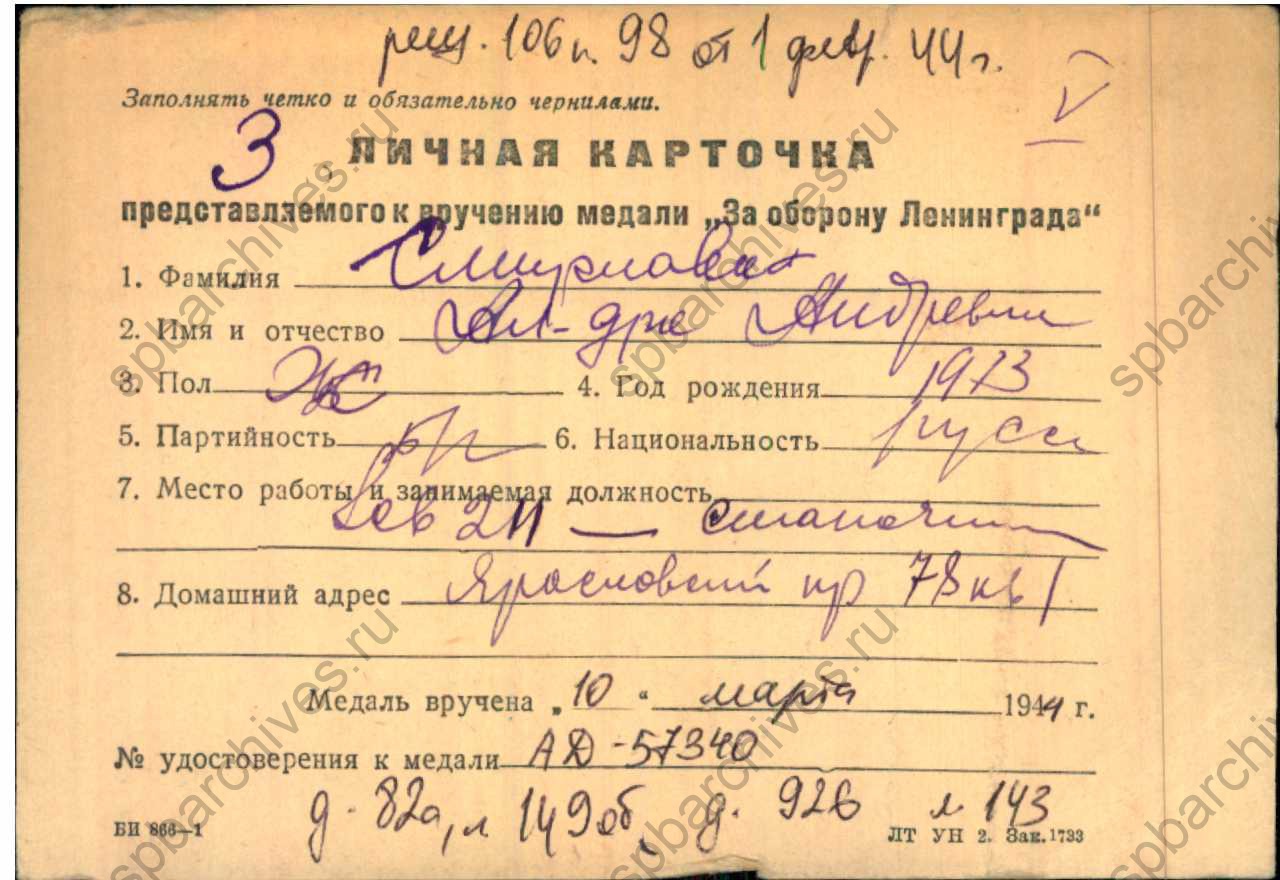 реш. 106 п. 98 от 1 февр. 44 г.
Заполнять четко и обязательно чернилами.
3
ЛИЧНАЯ КАРТОЧКА
представляемого к вручению медали „За оборону Ленинграда“
1. Фамилия
2. Имя и отчество Ал-дре Андревни
3. Пол Ж 4. Год рождения 1973
5. Партийность бп 6. Национальность русск
7. Место работы и занимаемая должность
211 —
8. Домашний адрес пр 78 кв 1
Медаль вручена „10“ марта 1944 г.
№ удостоверения к медали АД-57340
д. 82а, л 149об, д. 926 л. 143
БИ 866—1 ЛТ УН 2. Зак. 1733
spbarchives.ru